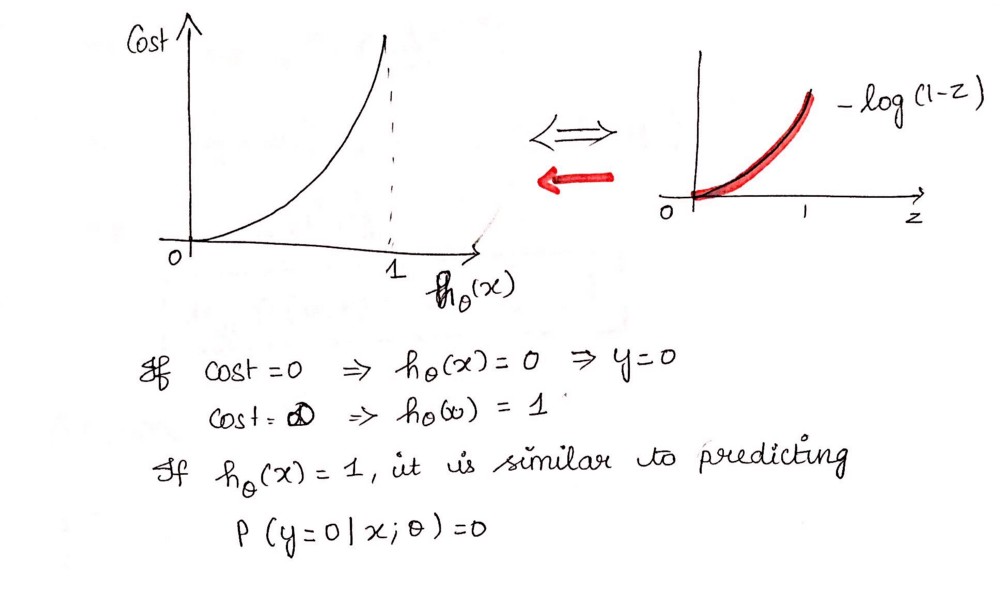 Cost
0
1
hθ(x)
⇔
←
- log (1-z)
0
1
z
If cost = 0 ⇒ hθ(x) = 0 ⇒ y = 0
cost = ∞ ⇒ hθ(x) = 1
If hθ(x) = 1, it is similar to predicting
P (y = 0 | x; θ) = 0